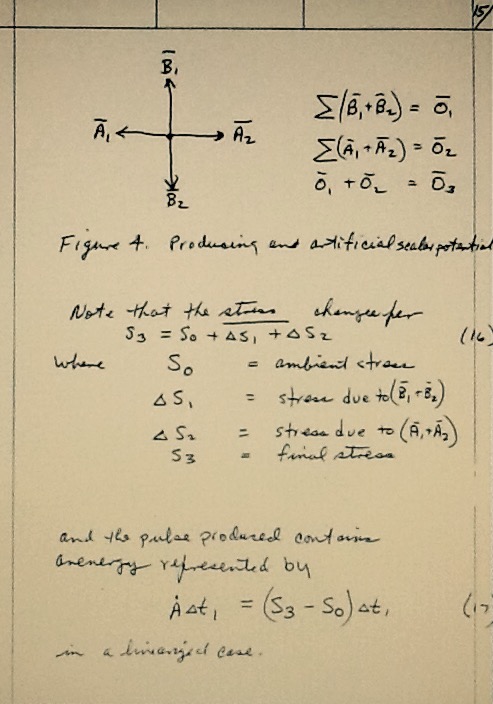 15/
B̄₁
Ā₁ Ā₂
B̄₂
∑(B̄₁+B̄₂) = Ō₁
∑(Ā₁+Ā₂) = Ō₂
Ō₁ + Ō₂ = Ō₃
Figure 4. Producing and artificial scalar potential
Note that the stress changes per
S₃ = S₀ + ΔS₁ + ΔS₂ (16)
where S₀ = ambient stress
ΔS₁ = stress due to (B̄₁+B̄₂)
ΔS₂ = stress due to (Ā₁+Ā₂)
S₃ = final stress
and the pulse produced contains
anenergy represented by
Ȧ Δt₁ = (S₃ - S₀) Δt₁ (17
in a linearized case.